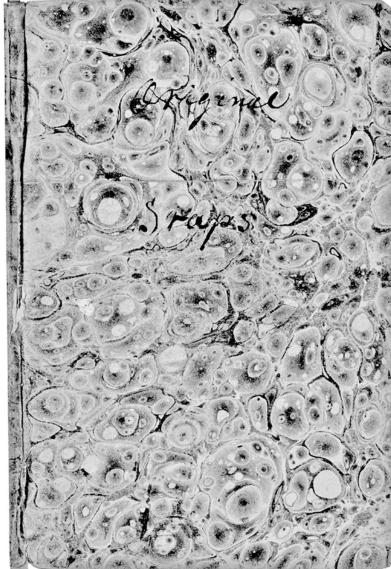 Original
Scraps